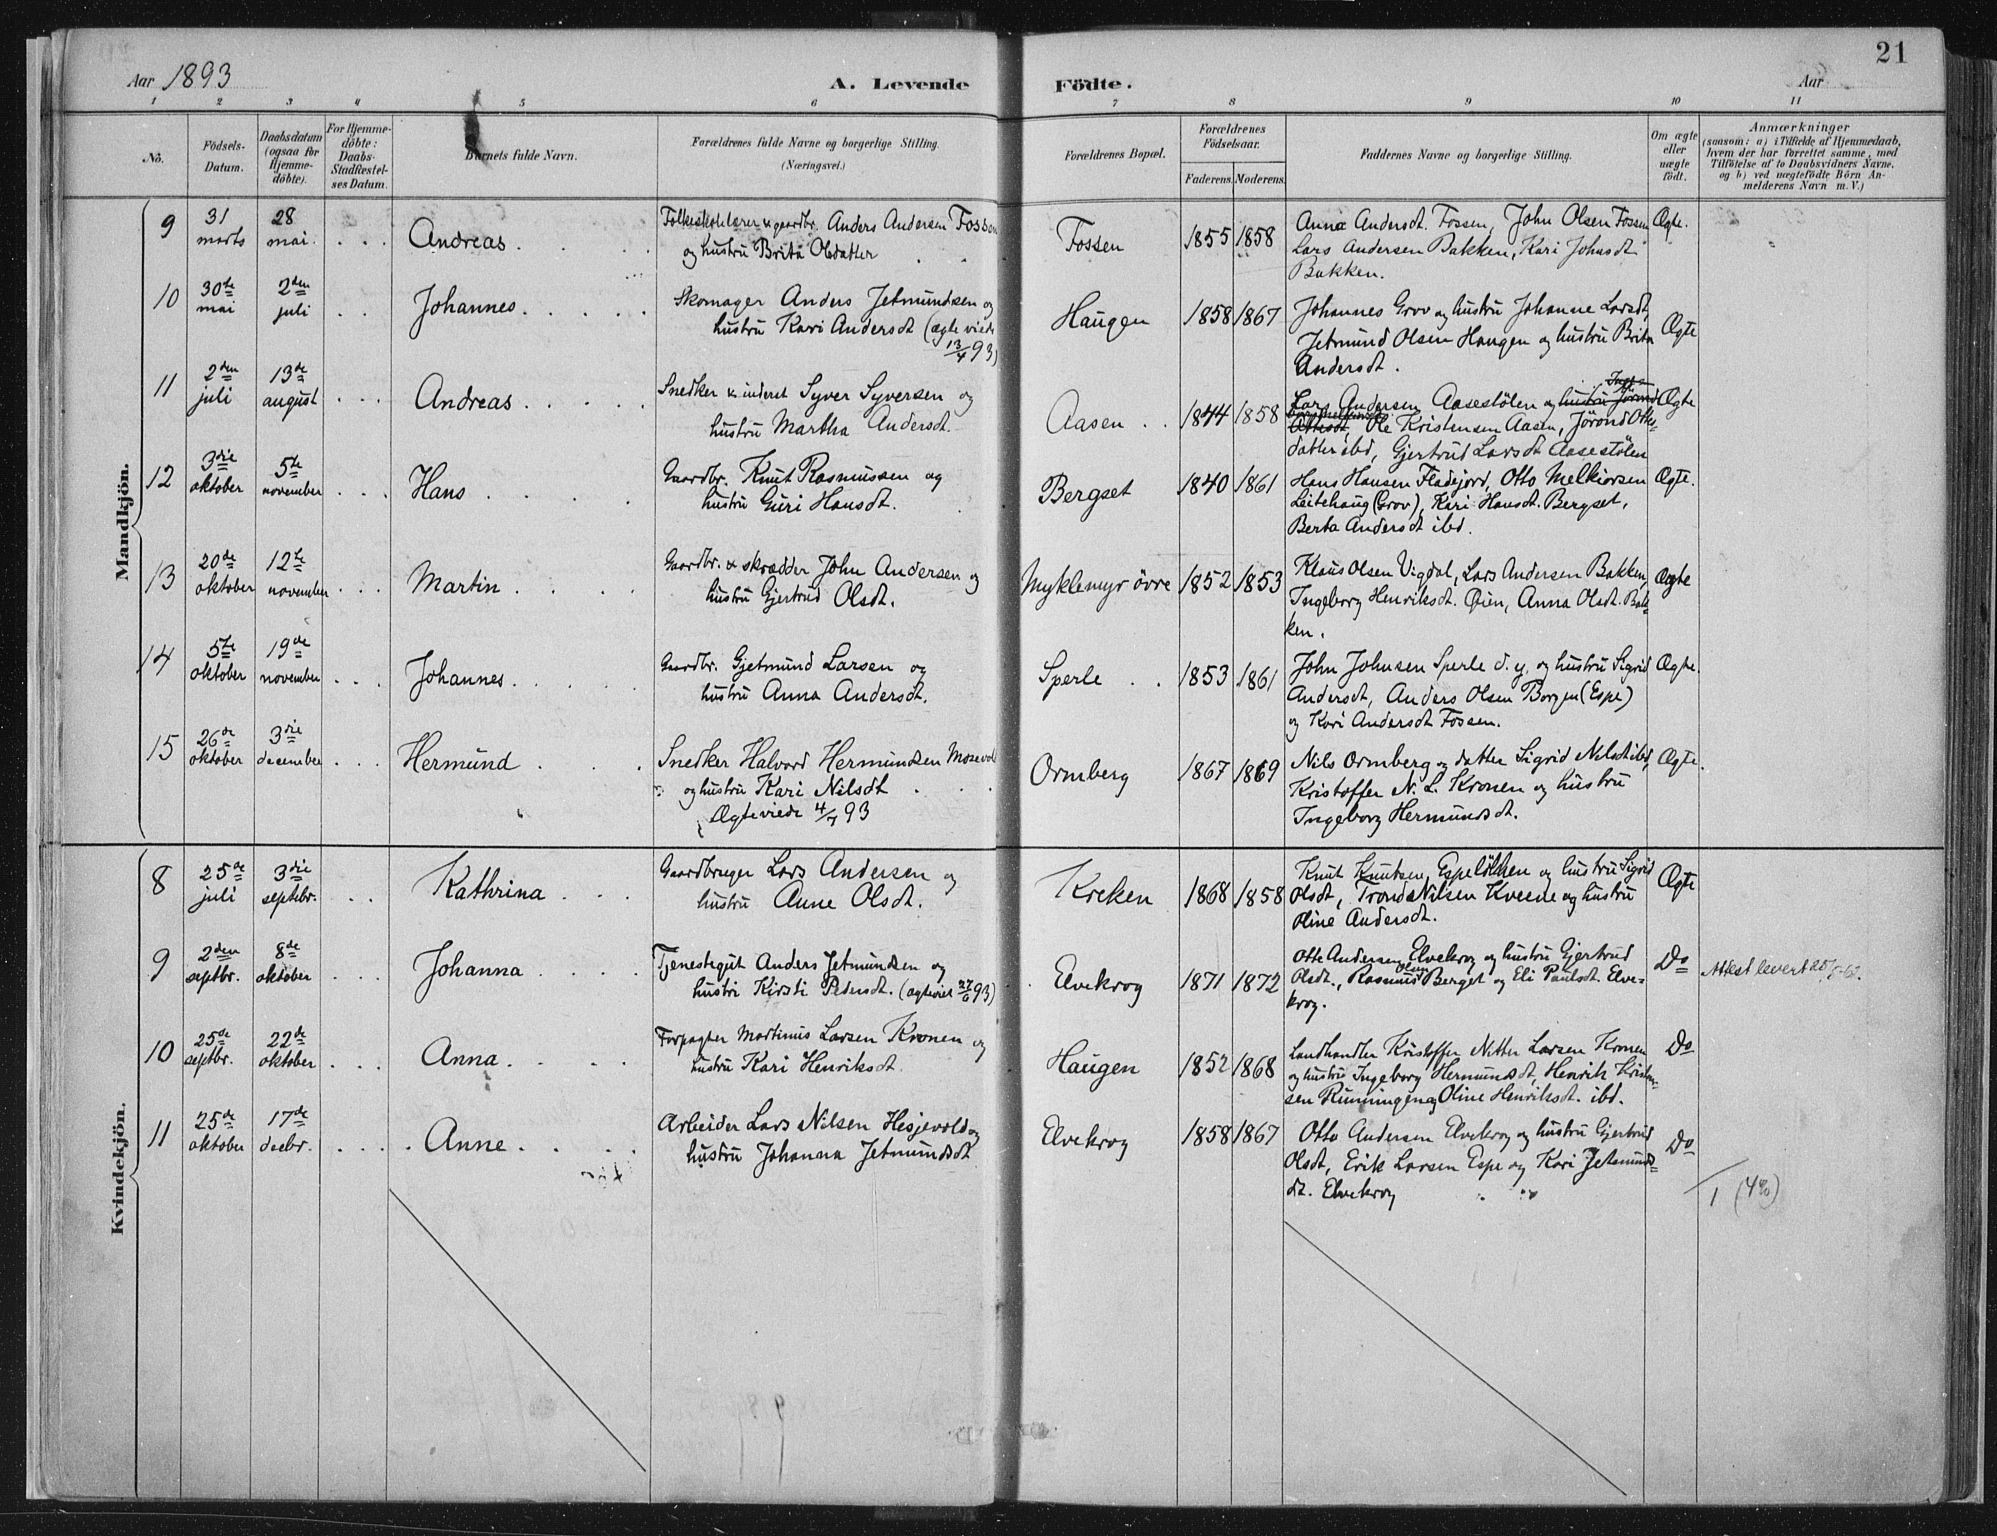 21
Aar 1893
A. Levende Födte.
Aar
1 2 3 4 5 6 7 8 9 10 11
No.
Födsels-Datum.
Daabsdatum (ogsaa for Hjemme-döbte).
For Hjemme-döbte: Daabs-Stadfæstel-ses Datum.
Barnets fulde Navn.
Forældrenes fulde Navne og borgerlige Stilling.
(Næringsvei.)
Forældrenes Bopæl.
Forældrenes Födselsaar.
Faderens. Moderens.
Faddernes Navne og borgerlige Stilling.
Om ægte eller uægte födt.
Anmærkninger
(saasom: a) i Tilfælde af Hjemmedaab,
hvem der har forrettet samme, med
Tilföielse af to Daabsvidners Navne,
og b) ved uægtefödte Börn An-
melderens Navn m. V.)
Mandkjön.
9 31 marts 28 mai. Andreas.
Folkeskolelærer & gaardbr. Anders Andersen Fossen
og hustru Brita Olsdatter
Fossen 1855 1858
Anna Andersdt. Fossen, John Olsen Fossen
Lars Andersen Bakken, Kari Johnsdt
Bakken.
Ægte.
10 30te mai 2den juli Johannes.
Skomager Anders Jetmundsen og
hustru Kari Andersdt (ægteviede
13/4 93)
Haugen 1858 1867
Johannes Grov og hustru Johanne Larsdt,
Jetmund Olsen Haugen og hustru Brita
Andersdt.
Ægte
11 2den juli 13de august Andreas.
Snedker & inderst Syver Syversen og
hustru Martha Andersdt.
Aasen 1844 1858
Lars Andersen Aasestölen og hustru Jörond
Ottesdt, Ole Kristensen Aasen, Jörond Ottes-
datter ibd, Gjertrud Larsdt Aasestölen
Ægte
12 3die oktober 5te november Hans
Gaardbr. Knut Rasmussen og
hustru Guri Hansdt.
Bergset 1840 1861
Hans Hansen Fladejord, Otto Melkiorsen
Leitehaug (Grov), Kari Hansdt. Bergset,
Berta Andersdt ibd.
Ægte.
13 20de oktober 12te november Martin
Gaardbr. & skrædder John Andersen og
hustru Gjertrud Olsdt.
Myklemyr övre 1852 1853
Klaus Olsen Vigdal, Lars Andersen Bakken,
Ingeborg Henriksdt. Öien, Anna Olsdt. Bak-
ken.
Ægte
14 5te oktober 19de november Johannes.
Gaardbr. Gjetmund Larsen og
hustru Anna Andersdt.
Sperle 1853 1861
John Johnsen Sperle d. y. og hustru Sigrid
Andersdt, Anders Olsen Borgen (Espe)
og Kari Andersdt Fossen.
Ægte.
15 26de oktober 3die december Hermund
Snedker Halvard Hermundsen Mosevold
og hustru Kari Nilsdt
Ægteviede 4/7 93
Ormberg 1867 1869
Nils Ormberg og datter Sigrid Nilsdt ibd,
Kristoffer N. L. Kronen og hustru
Ingeborg Hermundsdt.
Ægte.
Kvindekjön.
8 25de juli 3die septbr. Kathrina
Gaardbruger Lars Andersen og
hustru Anne Olsdt.
Kreken 1868 1858
Knut Knutsen Espelökken og hustru Sigrid
Olsdt, Trond Nilsen Kveene og hustru
Oline Andersdt.
Ægte
9 2den septbr. 8de oktober Johanna
Tjenestegut Anders Jetmundsen og
hustru Kirsti Pedersdt. (ægteviet 27/6 93)
Elvekrog 1871 1872
Otte Andersen Elvekrog og hustru Gjertrud
Olsdt., Rasmus Olsen Berget og Eli Paulsdt. Elve-
krog.
Do
Attest levert
10 25de septbr. 22de oktober Anna
Forpagter Martinus Larsen Kronen og
hustru Kari Henriksdt.
Haugen 1852 1868
Landhandler Kristoffer Nitter Larsen Kronen
og hustru Ingeborg Hermundsdt, Henrik Kristen-
sen Runningen og Oline Henriksdt. ibd.
Do
11 25de oktober 17de decbr. Anne
Arbeider Lars Nilsen Hesjevold og
hustru Johanna Jetmundsdt
Elvekrog 1858 1867
Otto Andersen Elvekrog og hustru Gjertrud
Olsdt, Erik Larsen Espe og Kari Jetmunds-
dt. Elvekrog
Do